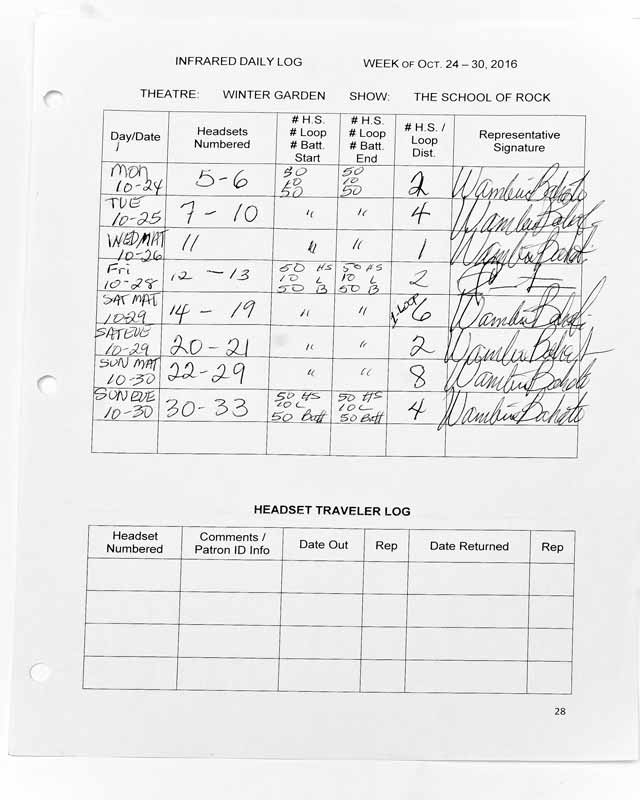 INFRARED DAILY LOG WEEK OF OCT. 24 – 30, 2016
THEATRE: WINTER GARDEN SHOW: THE SCHOOL OF ROCK
Day/Date
Headsets Numbered
# H.S.
# Loop
# Batt.
Start
# H.S.
# Loop
# Batt.
End
# H.S. /
Loop
Dist.
Representative
Signature
MON 10-24 5-6 50 10 50 50 10 50 2
TUE 10-25 7 - 10 " " 4
WED MAT 10-26 11 " " 1
Fri 10-28 12 - 13 50 HS 10 L 50 B 50 HS 10 L 50 B 2
SAT MAT 10-29 14 - 19 " " 1 Loop 6
SAT EVE 10-29 20-21 " " 2
SUN MAT 10-30 22-29 " " 8
SUN EVE 10-30 30-33 50 HS 10 L 50 Batt 50 HS 10 L 50 Batt 4
HEADSET TRAVELER LOG
Headset
Numbered
Comments /
Patron ID Info
Date Out
Rep
Date Returned
Rep
28